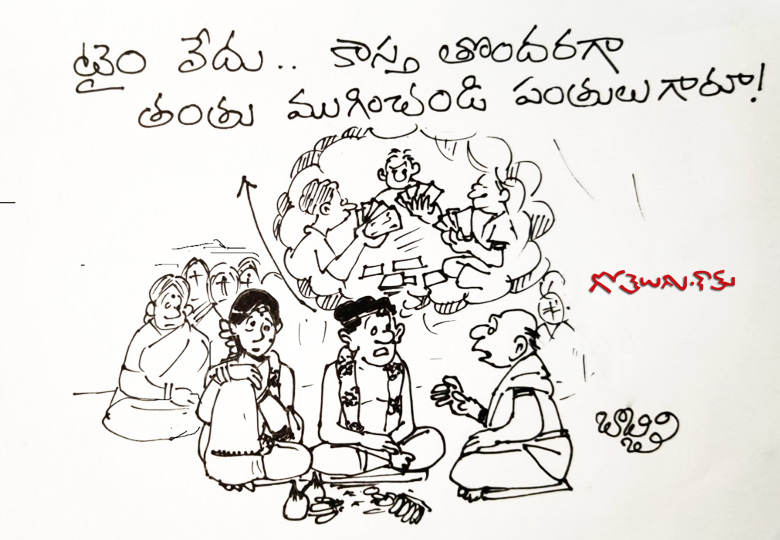 టైం లేదు.. కాస్త తొందరగా
తంతు ముగించండి పంతులుగారూ!
గోతెలుగు.కామ్
బాచి